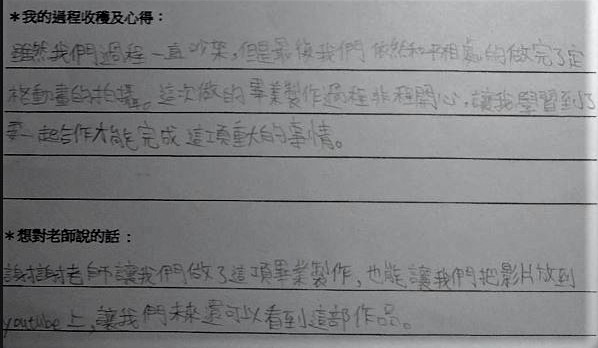 ＊我的過程收穫及心得：
雖然我們過程一直吵架，但是最後我們依然和平相處的做完了定
格動畫的拍攝。這次做的畢業製作過程非程開心，讓我學習到了
要一起合作才能完成這項重大的事情。
＊想對老師說的話：
謝謝老師讓我們做了這項畢業製作，也能讓我們把影片放到
youtube上，讓我們未來還可以看到這部作品。